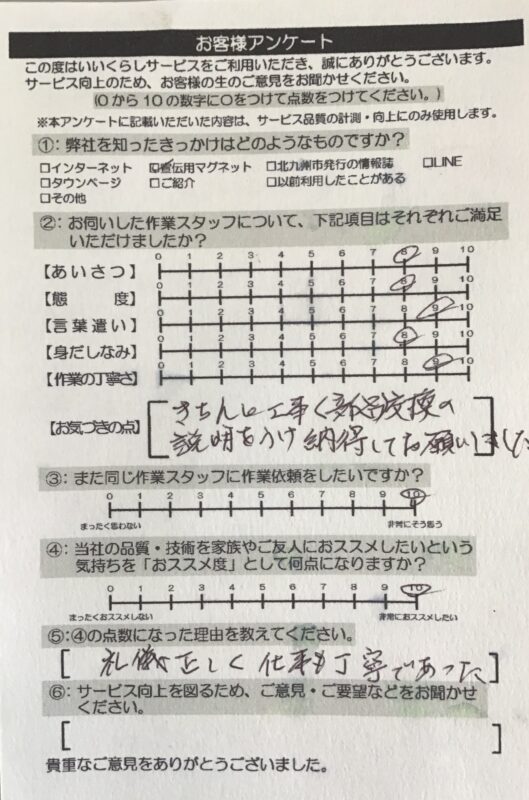 お客様アンケート
この度はいいくらしサービスをご利用いただき、誠にありがとうございます。
サービス向上のため、お客様の生のご意見をお聞かせください。
(0 から 10 の数字に○をつけて点数をつけてください。)
※本アンケートに記載いただいた内容は、サービス品質の計測・向上にのみ使用します。
①：弊社を知ったきっかけはどのようなものですか？
□インターネット ☑宣伝用マグネット □北九州市発行の情報誌 □LINE
□タウンページ □ご紹介 □以前利用したことがある
□その他
②：お伺いした作業スタッフについて、下記項目はそれぞれご満足
いただけましたか？
【あいさつ】 0 1 2 3 4 5 6 7 8 9 10
【態　度】 0 1 2 3 4 5 6 7 8 9 10
【言葉遣い】 0 1 2 3 4 5 6 7 8 9 10
【身だしなみ】 0 1 2 3 4 5 6 7 8 9 10
【作業の丁寧さ】 0 1 2 3 4 5 6 7 8 9 10
【お気づきの点】 きちんと工事く 交換の
説明をうけ納得してお願いしました
③：また同じ作業スタッフに作業依頼をしたいですか？
0 1 2 3 4 5 6 7 8 9 10
まったく思わない 非常にそう思う
④：当社の品質・技術を家族やご友人におススメしたいという
気持ちを「おススメ度」として何点になりますか？
0 1 2 3 4 5 6 7 8 9 10
まったくおススメしない 非常におススメしたい
⑤：④の点数になった理由を教えてください。
礼儀正しく仕事も丁寧であった
⑥：サービス向上を図るため、ご意見・ご要望などをお聞かせ
ください。
貴重なご意見をありがとうございました。